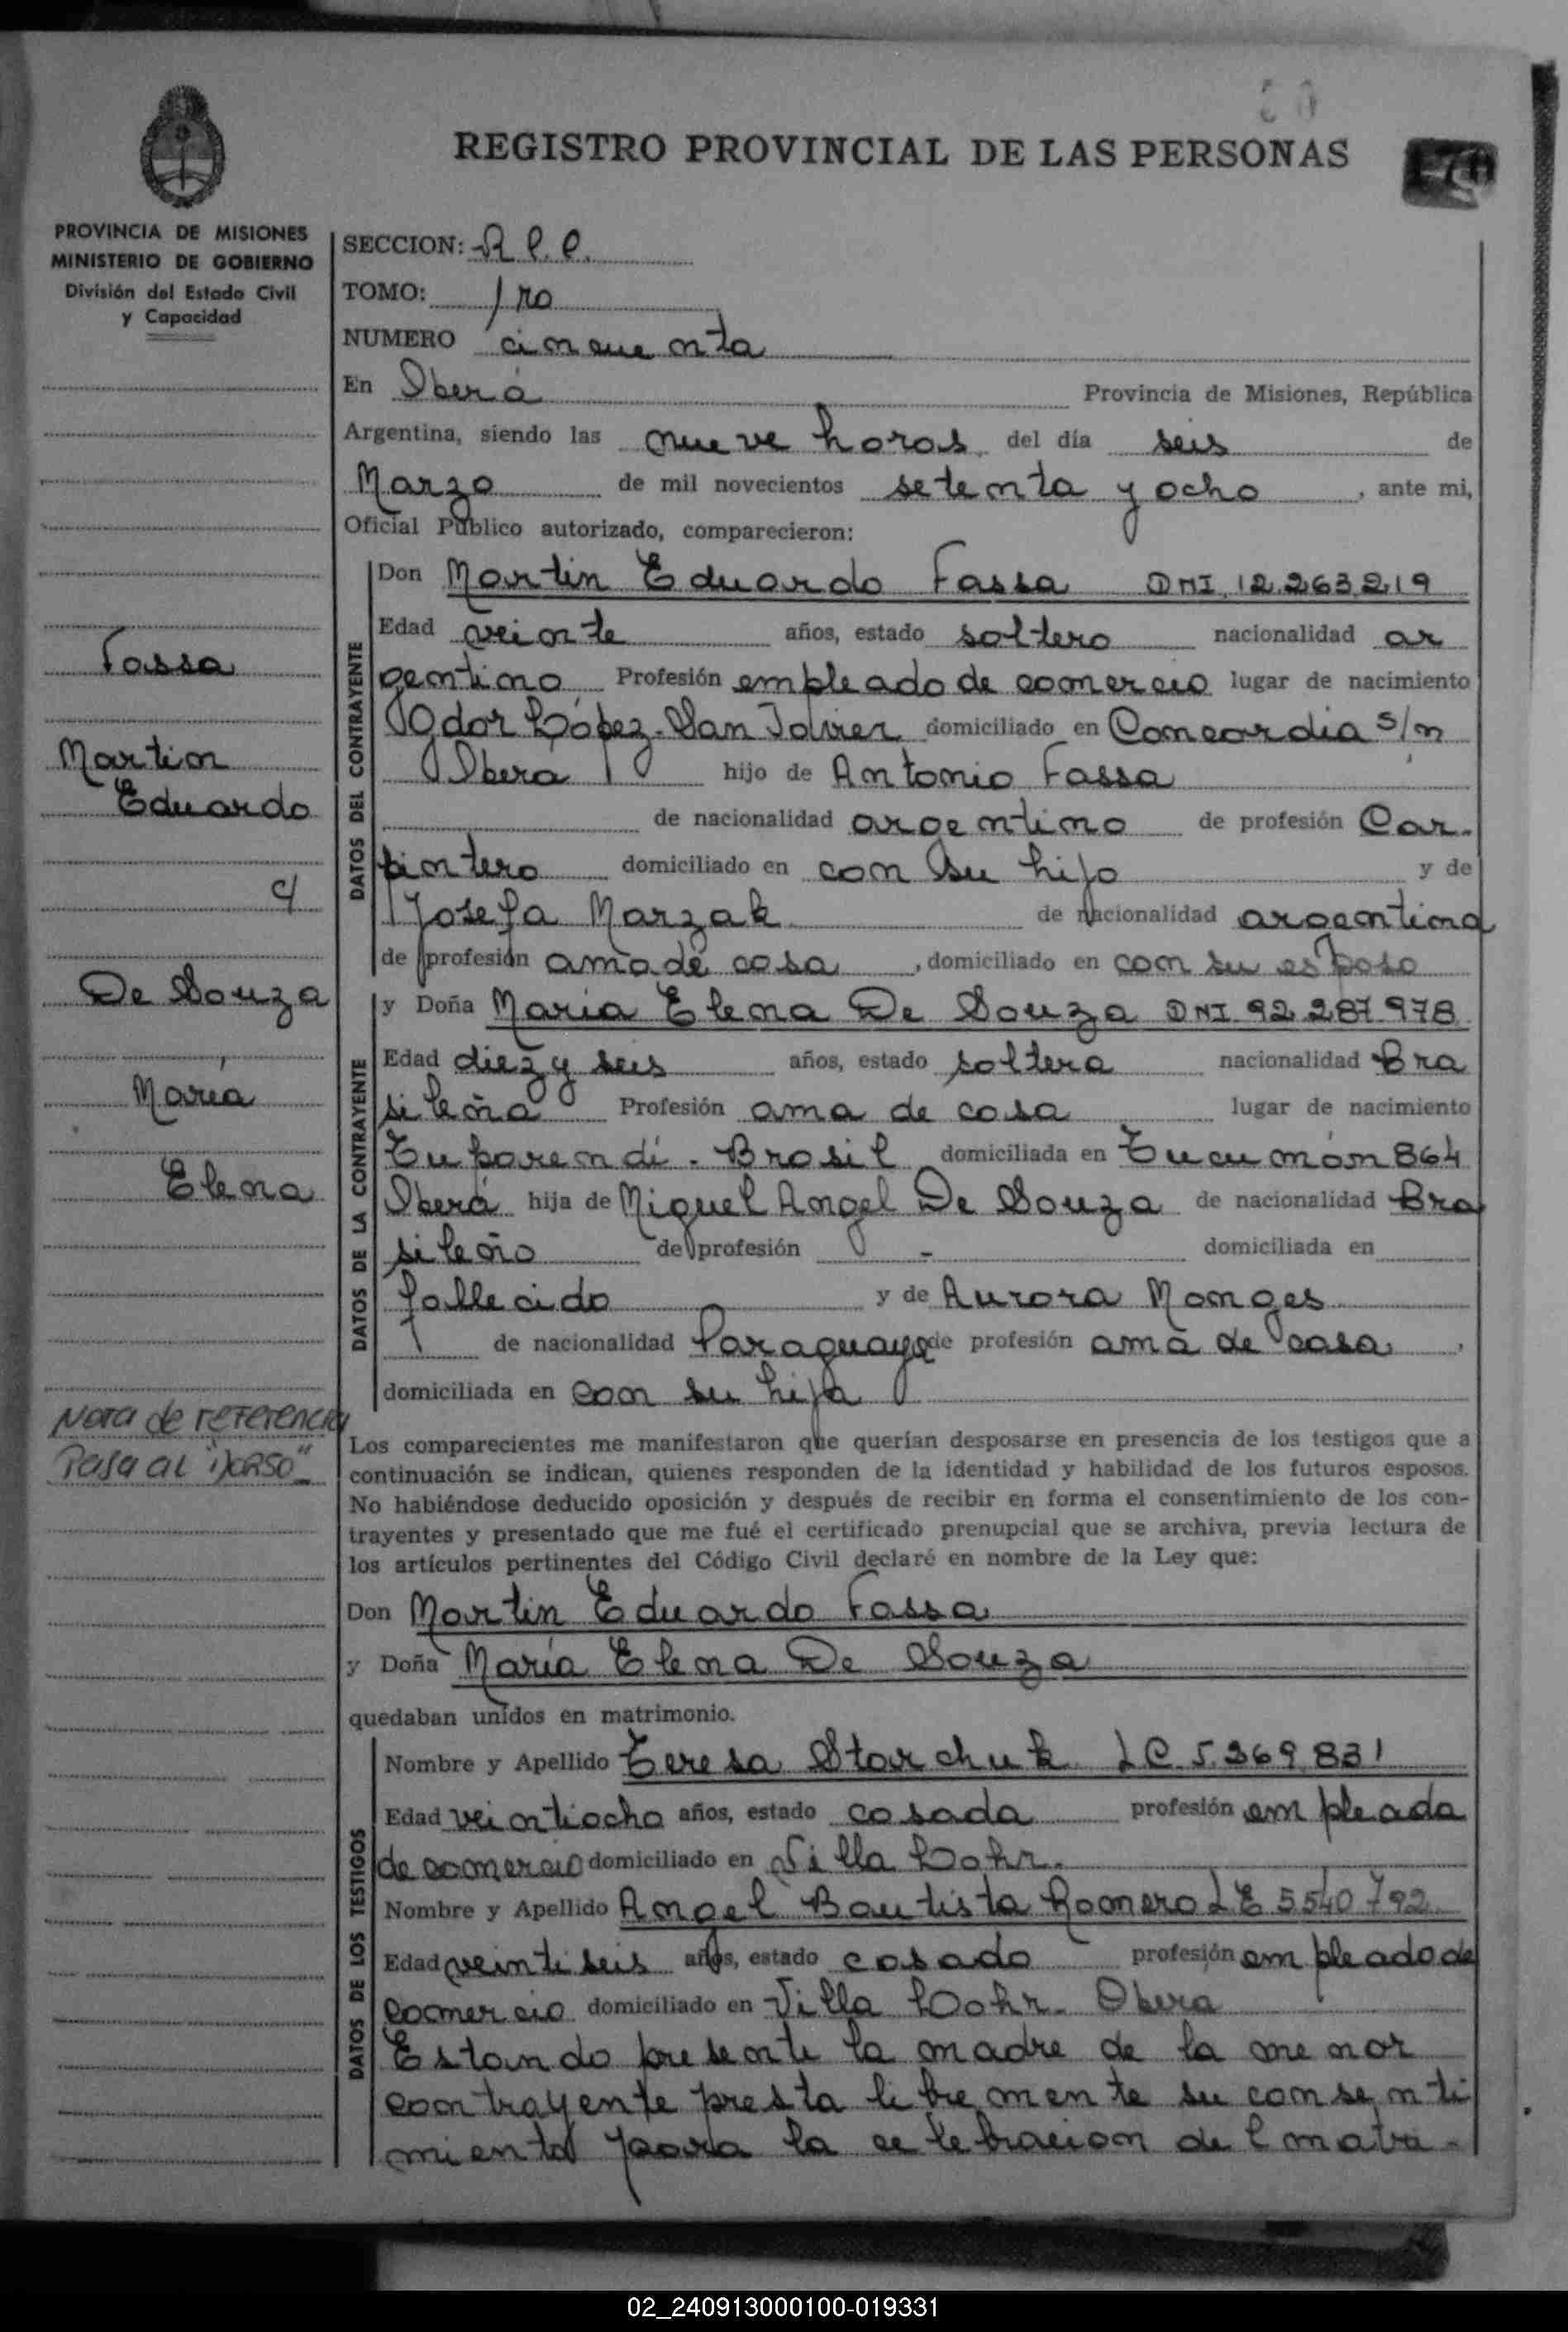 REGISTRO PROVINCIAL DE LAS PERSONAS
PROVINCIA DE MISIONES
MINISTERIO DE GOBIERNO
División del Estado Civil
y Capacidad
SECCION: R.P.P.
TOMO: 1ro
NUMERO cincuenta
En Oberá Provincia de Misiones, República
Argentina, siendo las nueve horas del día seis de
Marzo de mil novecientos setenta y ocho, ante mi,
Oficial Público autorizado, comparecieron:
Fassa
Martin
Eduardo
c/
De Souza
María
Elena
Nota de referencia
Pasa al "dorso"
DATOS DEL CONTRAYENTE
Don Martin Eduardo Fassa DNI 12.263.219
Edad veinte años, estado soltero nacionalidad ar
gentino Profesión empleado de comercio lugar de nacimiento
López-San Javier domiciliado en Concordia s/n
Obera hijo de Antonio Fassa
de nacionalidad argentino de profesión Car-
pintero domiciliado en con su hijo y de
Josefa Marzak de nacionalidad argentina
de profesión ama de casa, domiciliado en con su esposo
DATOS DE LA CONTRAYENTE
y Doña María Elena De Souza DNI 92.287.978
Edad diez y seis años, estado soltera nacionalidad Bra
sileña Profesión ama de casa lugar de nacimiento
Tuparendí - Brasil domiciliada en Tucumán 864
Oberá hija de Miguel Angel De Souza de nacionalidad Bra
sileño de profesión - domiciliada en
fallecido y de Aurora Monges
de nacionalidad Paraguaya de profesión ama de casa,
domiciliada en con su hija
Los comparecientes me manifestaron que querían desposarse en presencia de los testigos que a
continuación se indican, quienes responden de la identidad y habilidad de los futuros esposos.
No habiéndose deducido oposición y después de recibir en forma el consentimiento de los con-
trayentes y presentado que me fué el certificado prenupcial que se archiva, previa lectura de
los artículos pertinentes del Código Civil declaré en nombre de la Ley que:
Don Martin Eduardo Fassa
y Doña María Elena De Souza
quedaban unidos en matrimonio.
DATOS DE LOS TESTIGOS
Nombre y Apellido Teresa Starchuk LC 5.369.831
Edad veintiocho años, estado casada profesión empleada
de comercio domiciliado en Villa Lohr.
Nombre y Apellido Angel Bautista Romero LE 5540792
Edad veintiseis años, estado casado profesión empleado de
comercio domiciliado en Villa Lohr- Obera
Estando presente la madre de la menor
contrayente presta libremente su consenti
miento para la celebracion del matri-
02_240913000100-019331